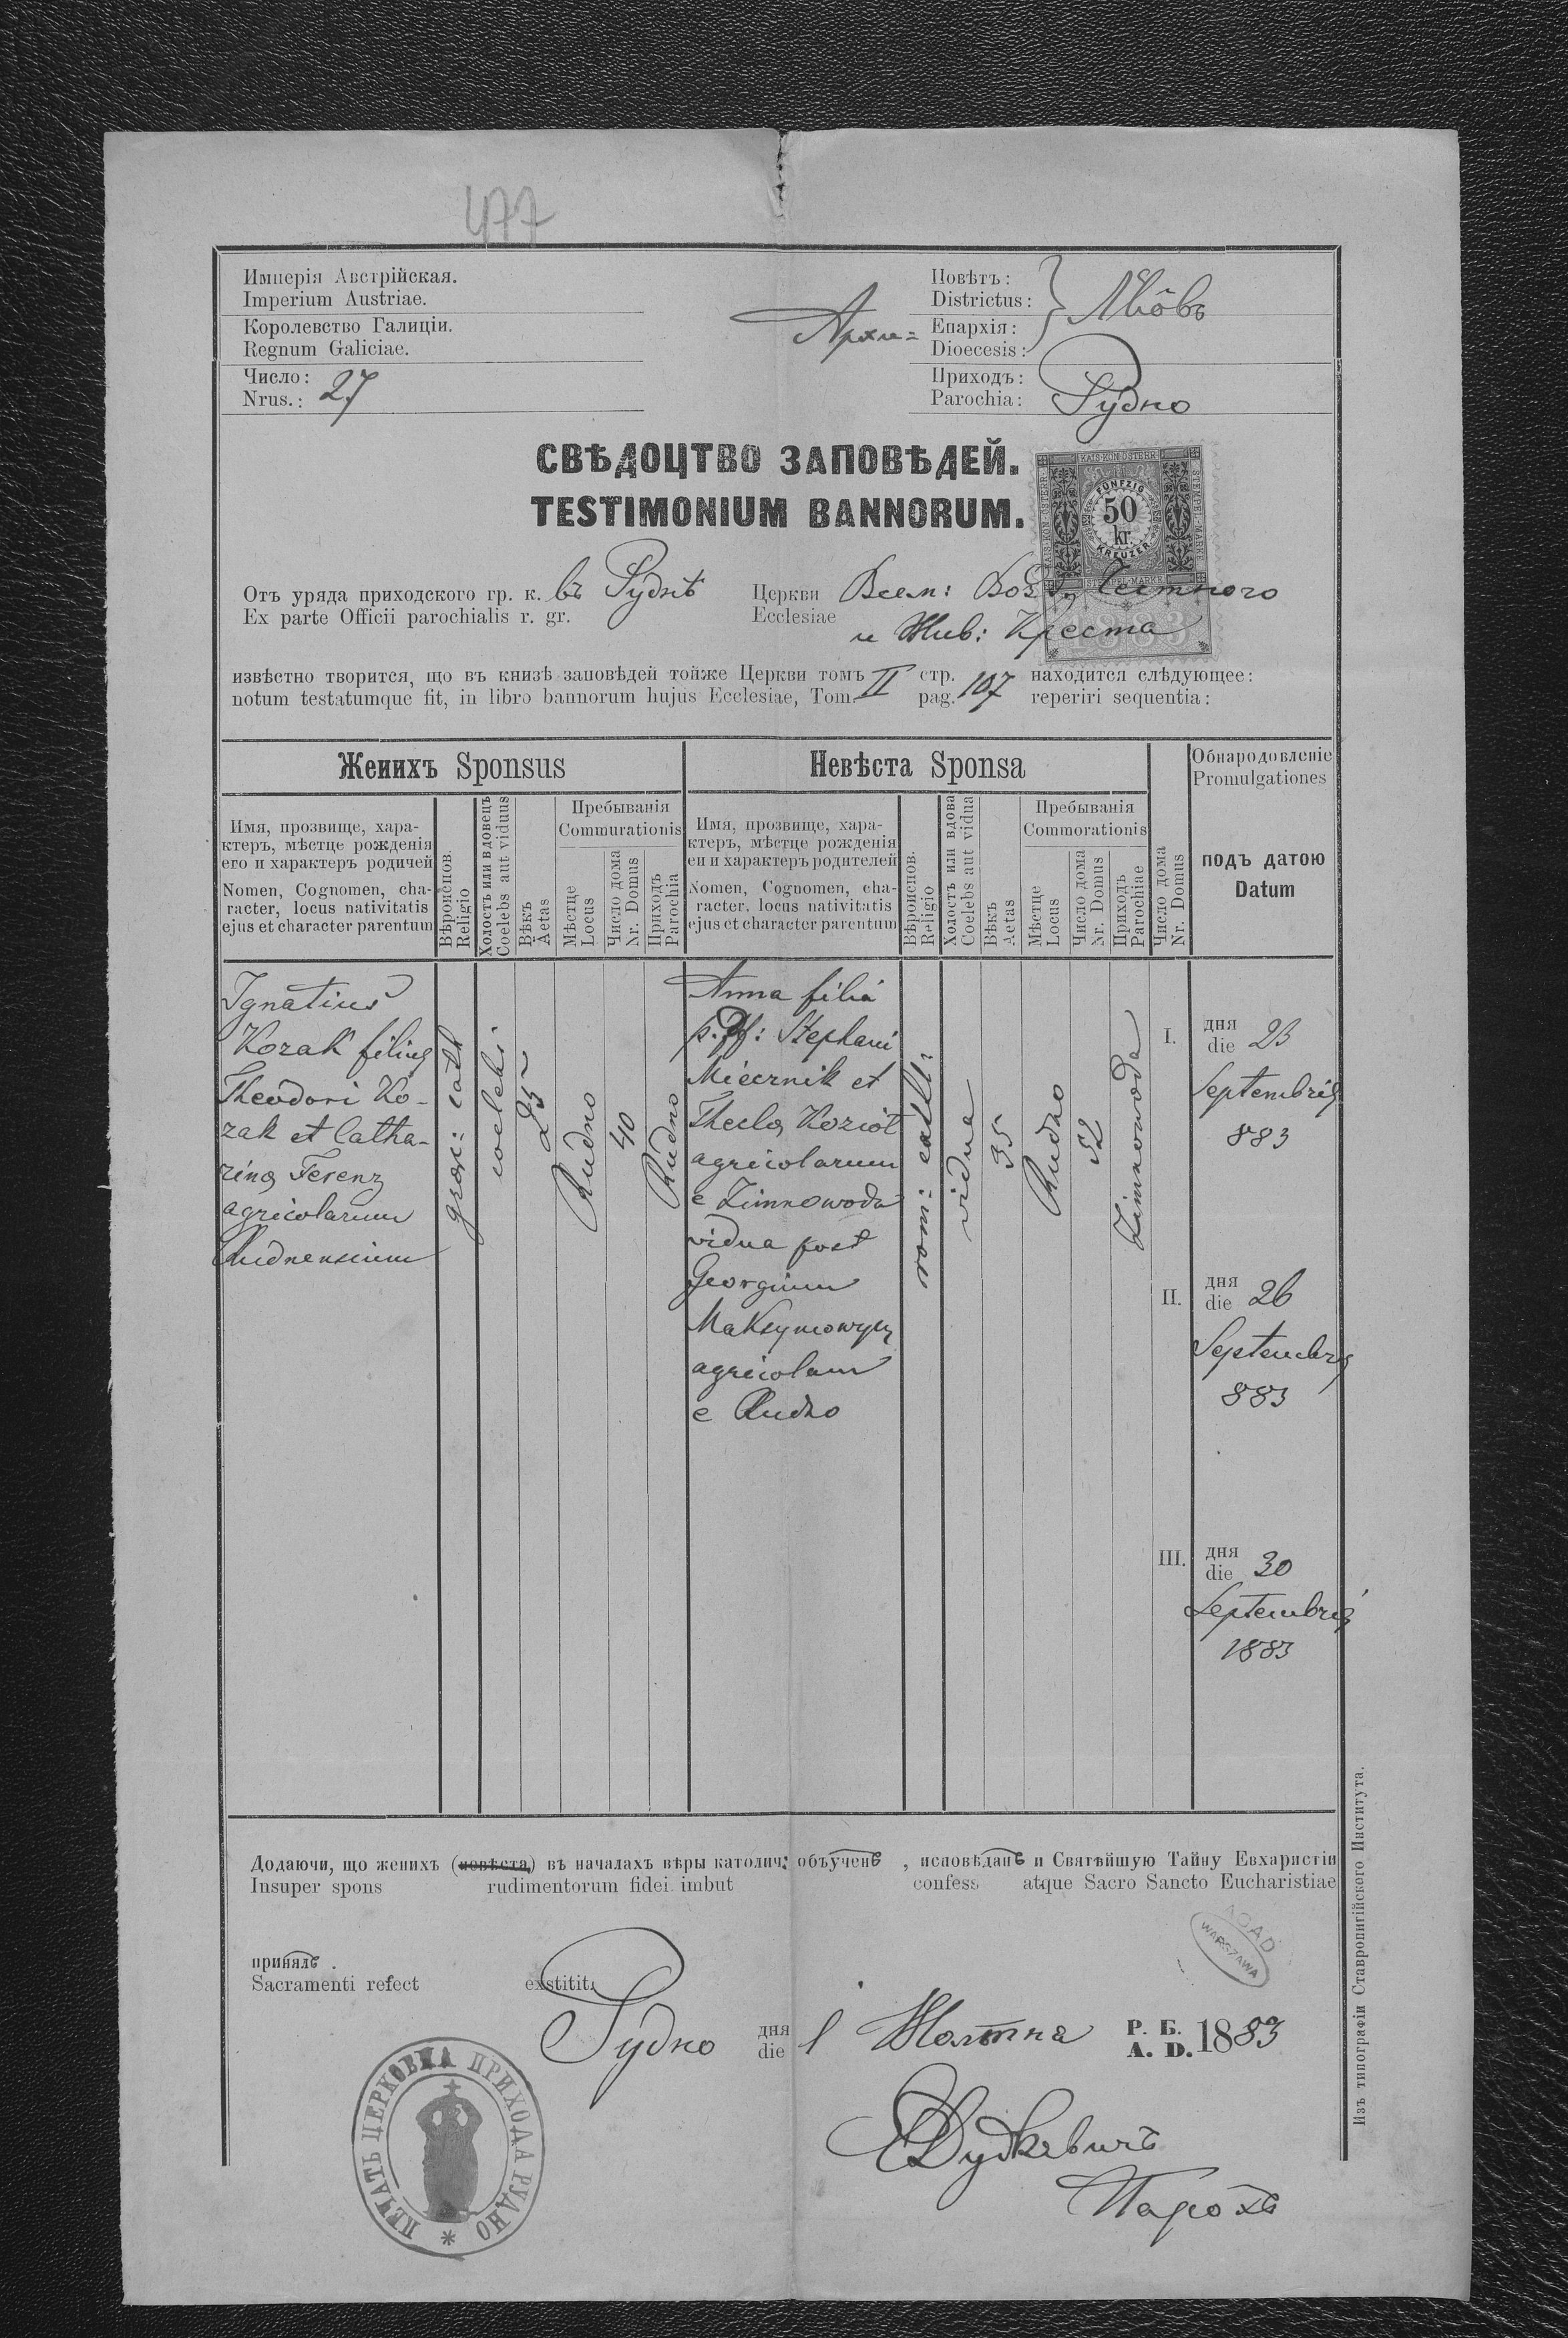 477
Имперія Австрійская.
Imperium Austriae.
Королевство Галиціи.
Regnum Galiciae.
Число:
Nrus.: 27
Повѣтъ:
Districtus: Львôвъ
Архи= Епархія:
Dioecesis:
Приходъ:
Parochia: Рудно
СВѢДОЦТВО ЗАПОВѢДЕЙ.
TESTIMONIUM BANNORUM.
KAIS. KÖN. ÖSTERR.
STEMPEL-MARKE
FÜNFZIG
50
kr.
KREUZER
STEMPEL-MARKE
1883
Отъ уряда приходского гр. к. въ Руднѣ Церкви Всем: Воз Честного
Ex parte Officii parochialis r. gr. Ecclesiae и Жив: Креста
извѣстно творится, що въ книзѣ заповѣдей тойже Церкви томъ II стр. 107 находится слѣдующее:
notum testatumque fit, in libro bannorum hujus Ecclesiae, Tom. pag. reperiri sequentia:
Женихъ Sponsus
Невѣста Sponsa
Обнародовленіе
Promulgationes
Имя, прозвище, хара-
ктеръ, мѣстце рожденія
его и характеръ родичей
Nomen, Cognomen, cha-
racter, locus nativitatis
ejus et character parentum
Вѣроиспов.
Religio
Холостъ или вдовецъ
Coelebs aut viduus
Вѣкъ
Aetas
Пребыванія
Commurationis
Мѣстце
Locus
Число дома
Nr. Domus
Приходъ
Parochia
Имя, прозвище, хара-
ктеръ, мѣстце рожденія
еи и характеръ родителей
Nomen, Cognomen, cha-
racter, locus nativitatis
ejus et character parentum
Вѣроиспов.
Religio
Холостъ или вдова
Coelebs aut vidua
Вѣкъ
Aetas
Пребыванія
Commorationis
Мѣстце
Locus
Число дома
Nr. Domus
Приходъ
Parochiae
Число дома
Nr. Domus
подъ датою
Datum
Ignatius
Kozak filius
Theodori Ko-
zak et Catha-
rina Ferenz
agricolarum
Rudnensium
graec: cath
coelebs.
25
Rudno
40
Rudno
Anna filia
p. ff: Stephani
Miecznik et
Thecla Kozioł
agricolarum
e Zimnowoda
vidua post
Georgium
Maksymowycz
agricolam
e Rudno
rom: cath:
vidua
35
Rudno
52
Zimnowoda
I. дня
die 23
Septembris
883
II. дня
die 26
Septembris
883
III. дня
die 30
Septembris
1883
Додаючи, що женихъ (невѣста) въ началахъ вѣры католич: объученъ , исповѣданъ и Святѣйшую Тайну Евхаристіи
Insuper spons rudimentorum fidei imbut confess atque Sacro Sancto Eucharistiae
принялъ .
Sacramenti refect exstitit.
AGAD
WARSZAWA
Рудно дня
die 1 Жолтня Р. Б.
A. D. 1883
Дудкевичъ
Парохъ
ПЕЧАТЬ ЦЕРКОВНА ПРИХОДА РУДНО
Изъ типографіи Ставропигійского Института.